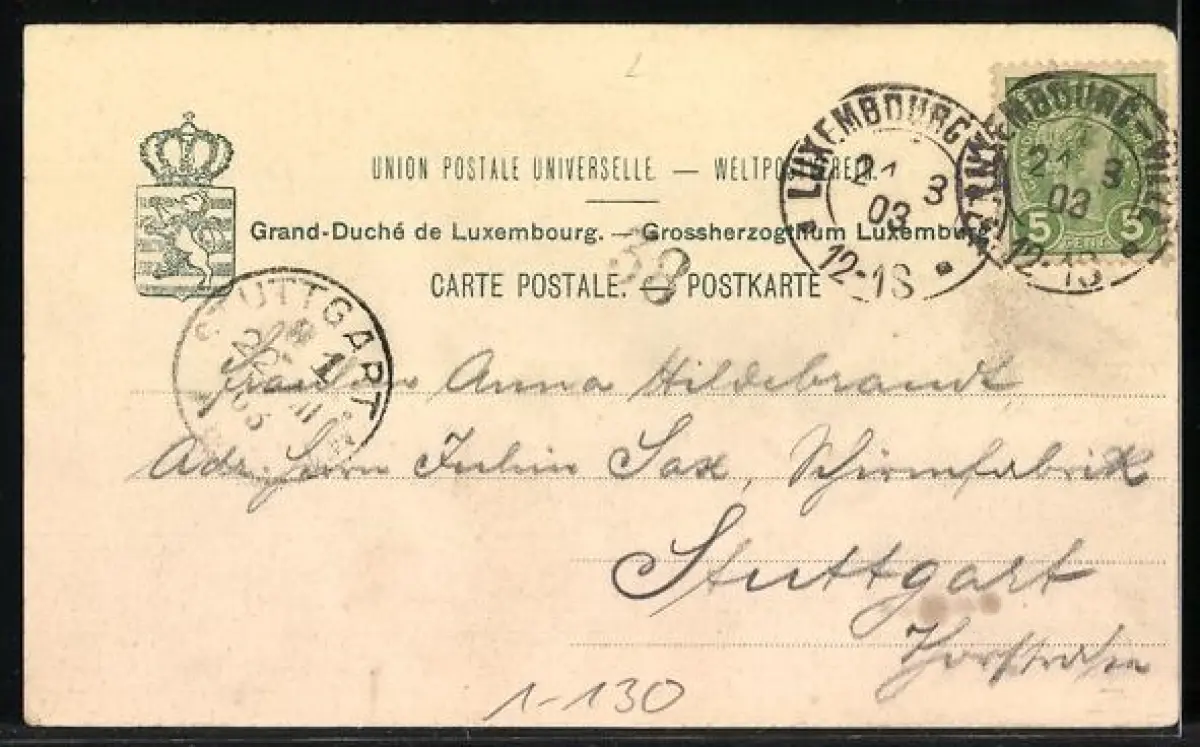 UNION POSTALE UNIVERSELLE. — WELTPOSTVEREIN.
Grand-Duché de Luxembourg. — Grossherzogthum Luxemburg.
CARTE POSTALE. — POSTKARTE
LUXEMBOURG
21 3
03
12-1S
LUXEMBOURG-VILLE
21 3
03
12-1S
5 CENT. 5
38
STUTTGART
1
III
03
Fräulein Anna Hildebrandt
Adr. Herrn Julius Sax, Schirmfabrik
Stuttgart
1-130